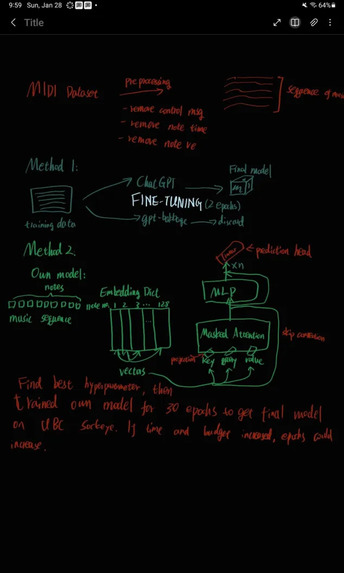 9:59 Sun, Jan 28
64%
Title
MIDI Dataset
preprocessing
- remove control msg
- remove note time
- remove note ve
sequence of
Method 1:
training data
ChatGPT
FINE-TUNING (2 epochs)
gpt-babbage
discard
Final model
Method 2.
Own model:
notes
music sequence
Embedding Dict
note num 1 2 3 ... 128
...
vectors
prediction head
xn
MLP
Masked Attention
skip connection
projection
key query value
Find best hyperparameter, then
trained own model for 30 epochs to get final model
on UBC sockeye. If time and budget increased, epochs could
increase.